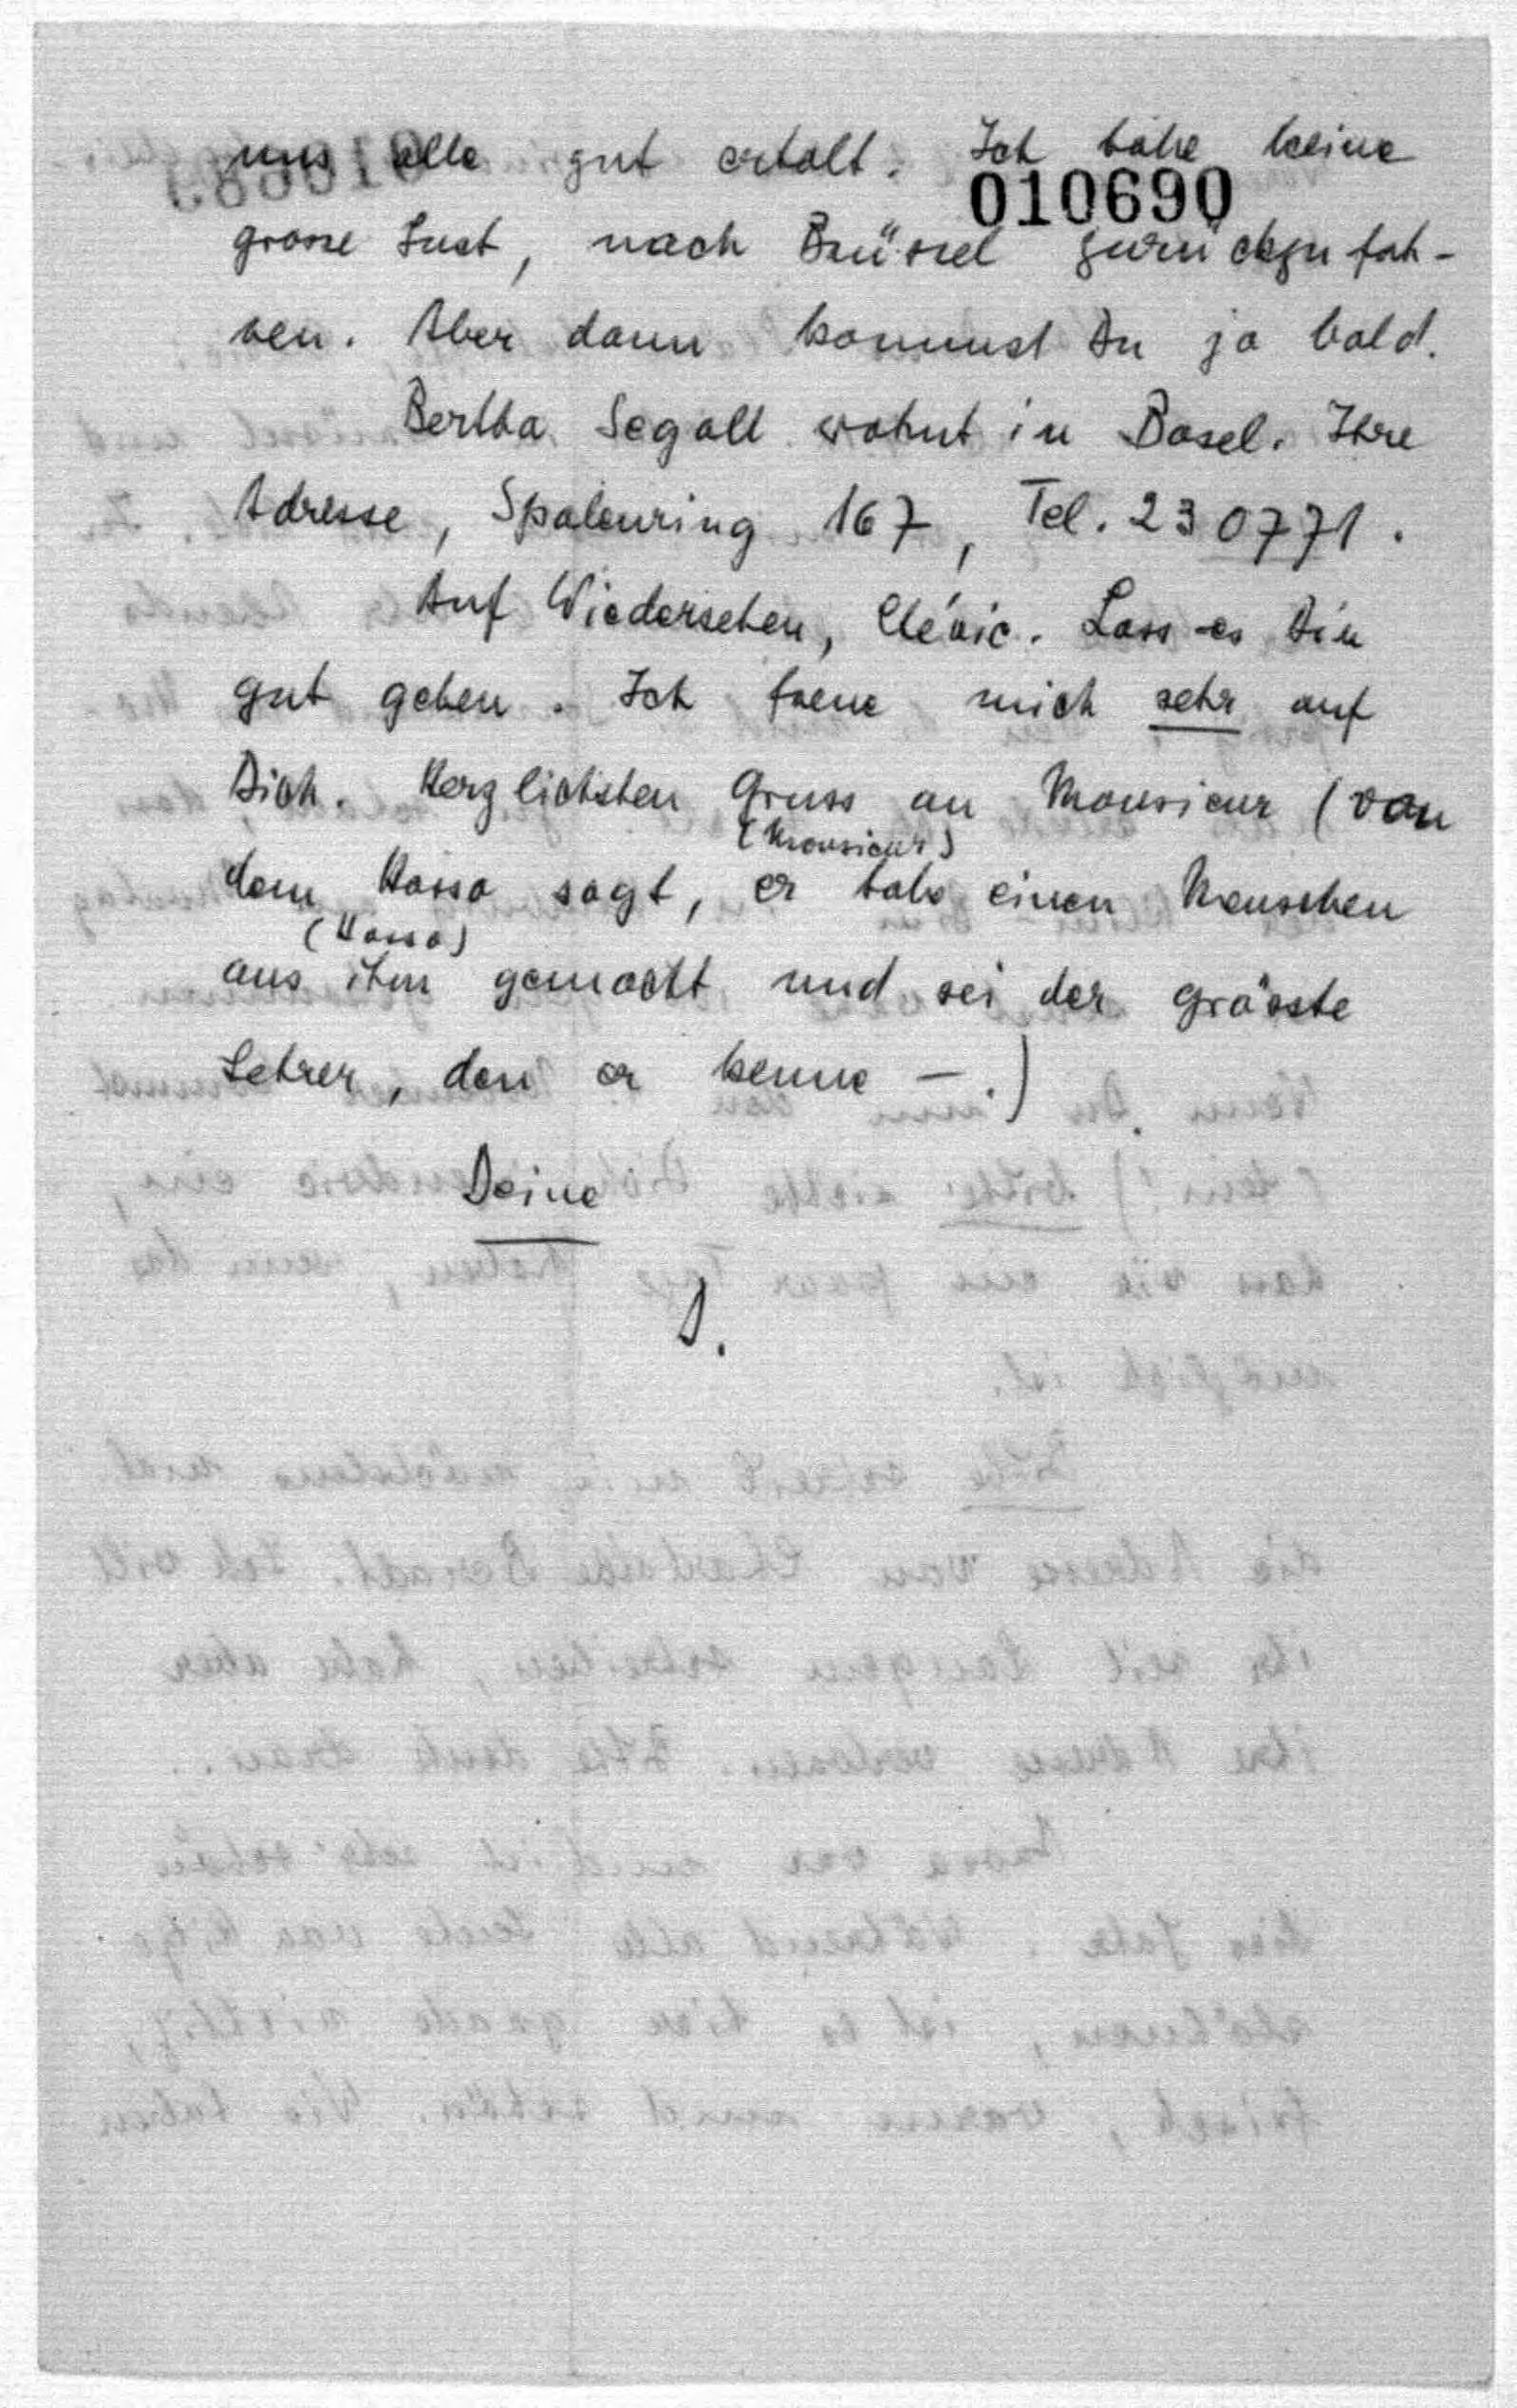 uns alle gut erholt. Ich habe keine
010690
grosse Lust, nach Brüssel zurückzufah-
ren. Aber dann kommst Du ja bald.
Bertha Segall wohnt in Basel. Ihre
Adresse, Spalenring 167, Tel. 230771.
Auf Wiedersehen, Chérie. Lass es Dir
gut gehen. Ich freue mich sehr auf
Dich. Herzlichsten Gruss an Monsieur (von
dem Hasso sagt, er (Monsieur) habe einen Menschen
aus ihm (Hasso) gemacht und sei der grösste
Lehrer, den er kenne —.)
Deine